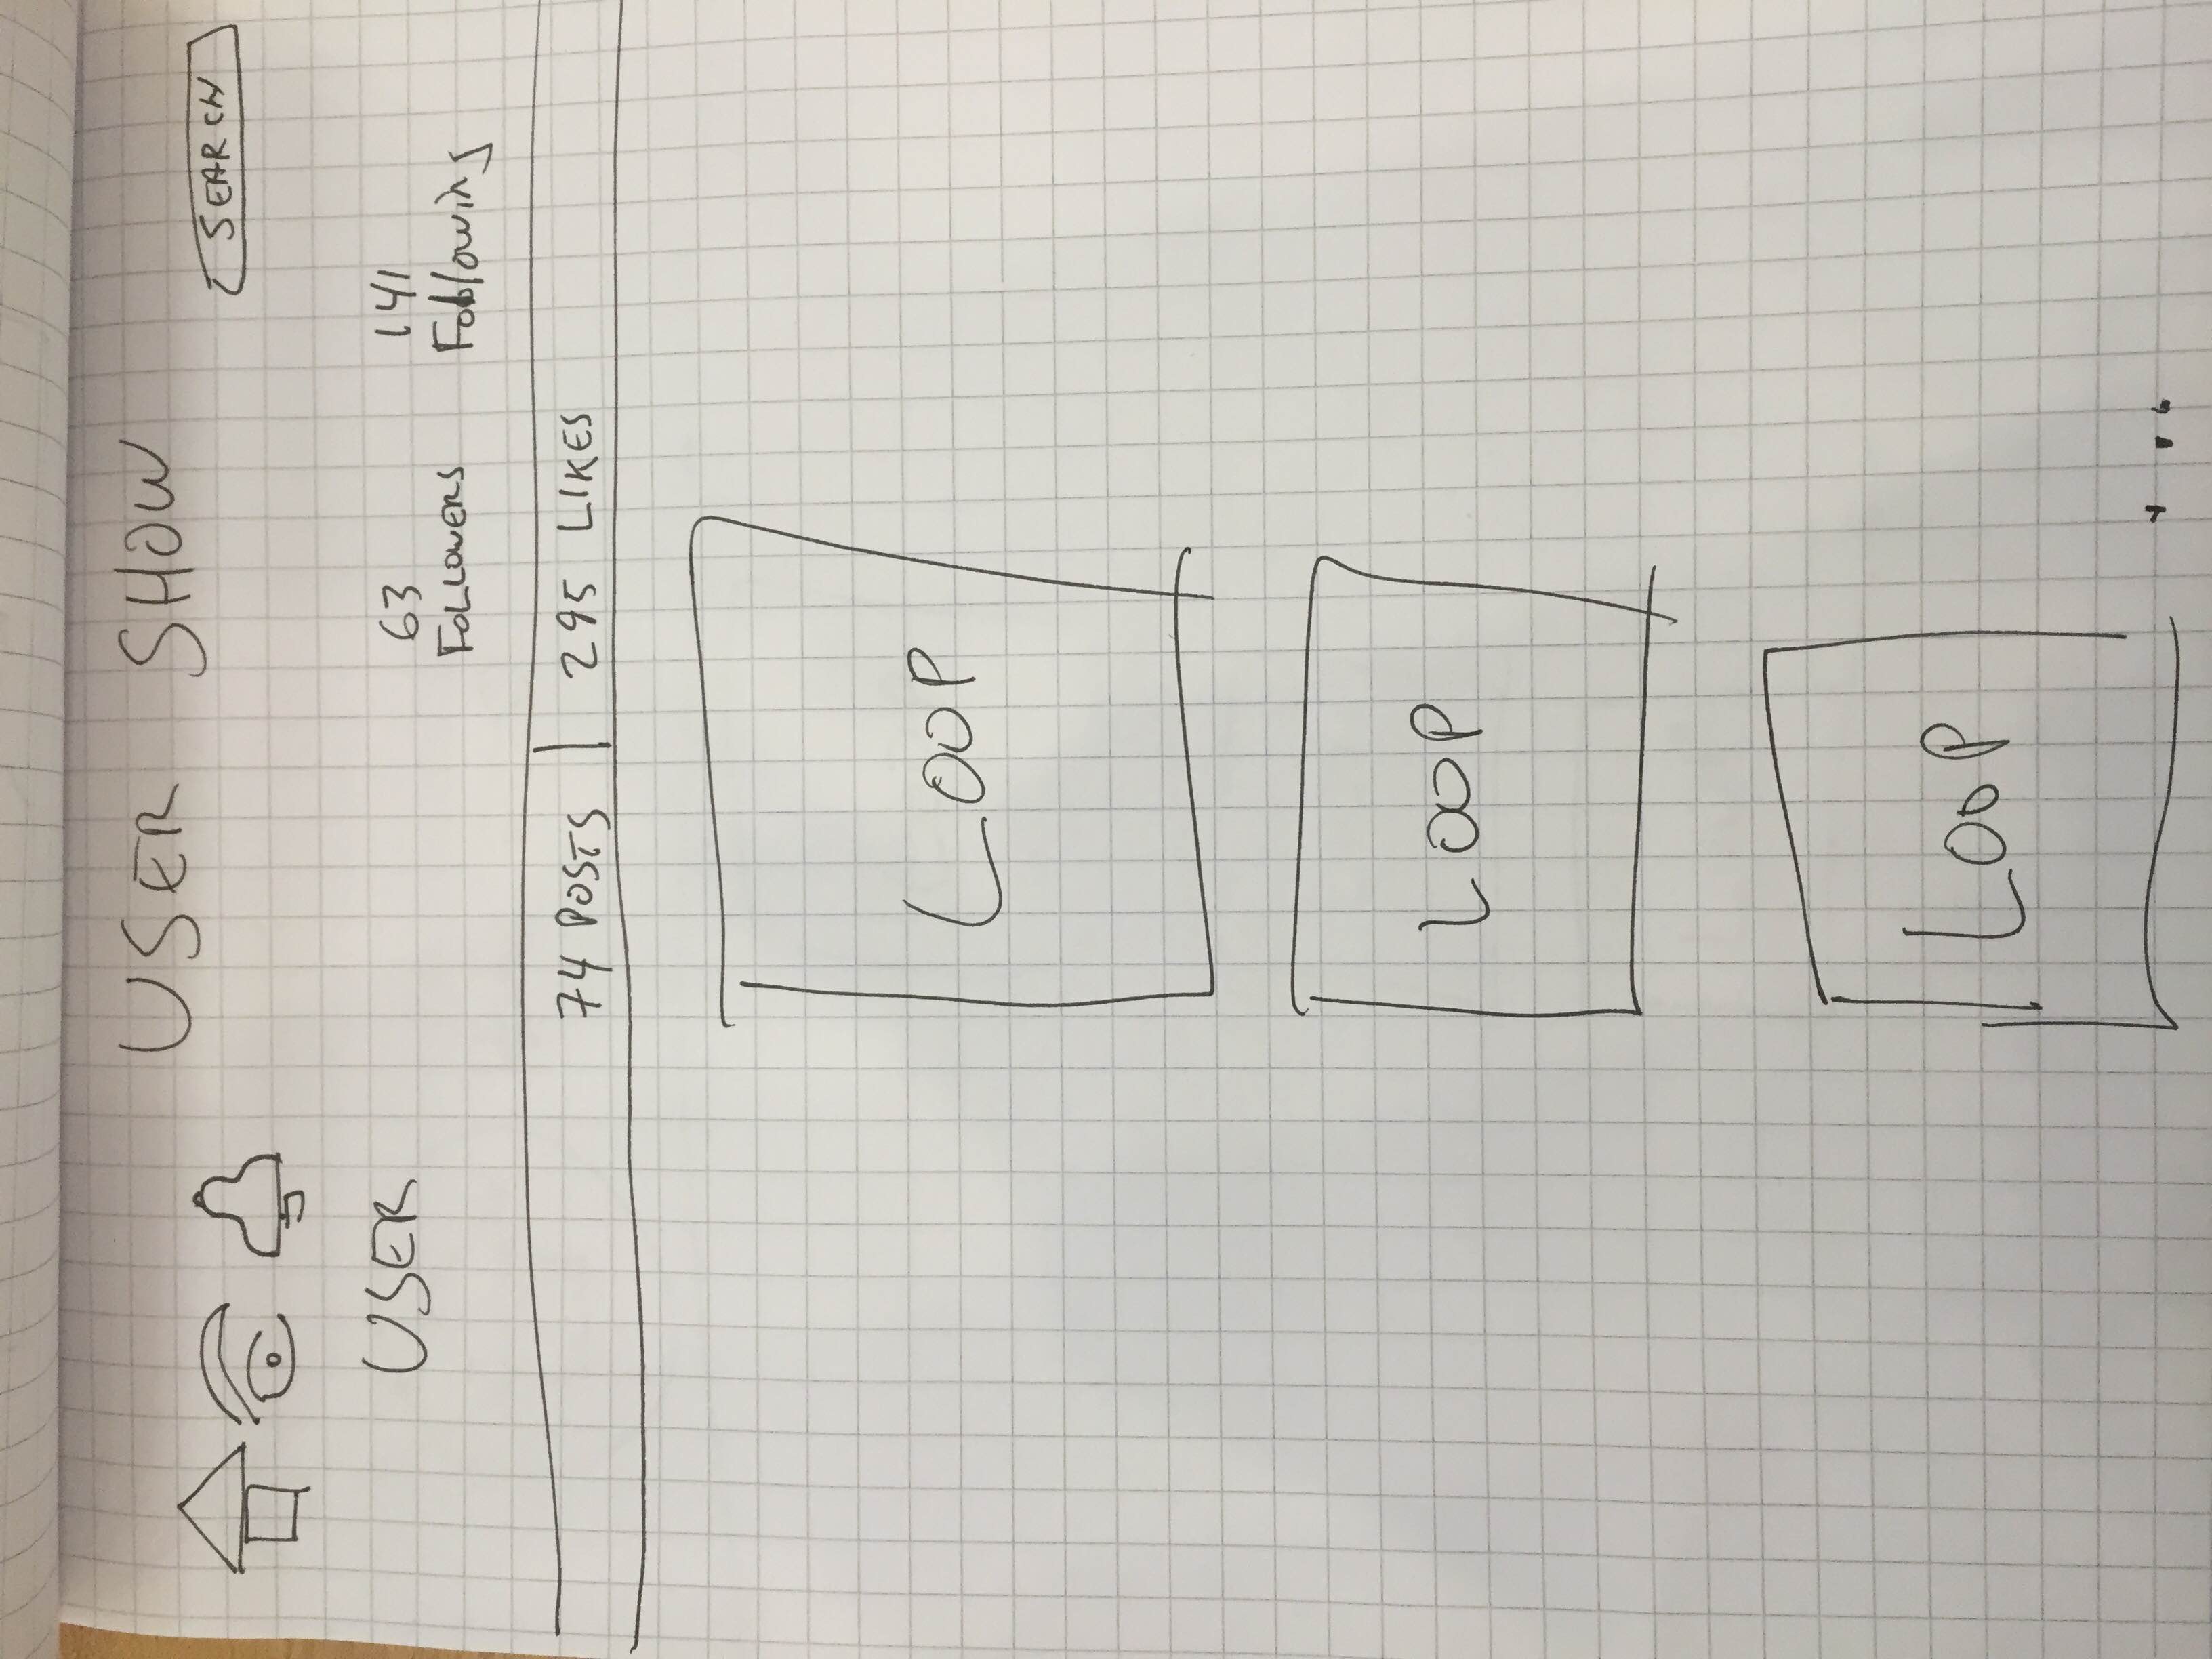 USER SHOW
SEARCH
USER
63
FOLLOWERS
141
Following
74 POSTS | 295 LIKES
LOOP
LOOP
LOOP
...